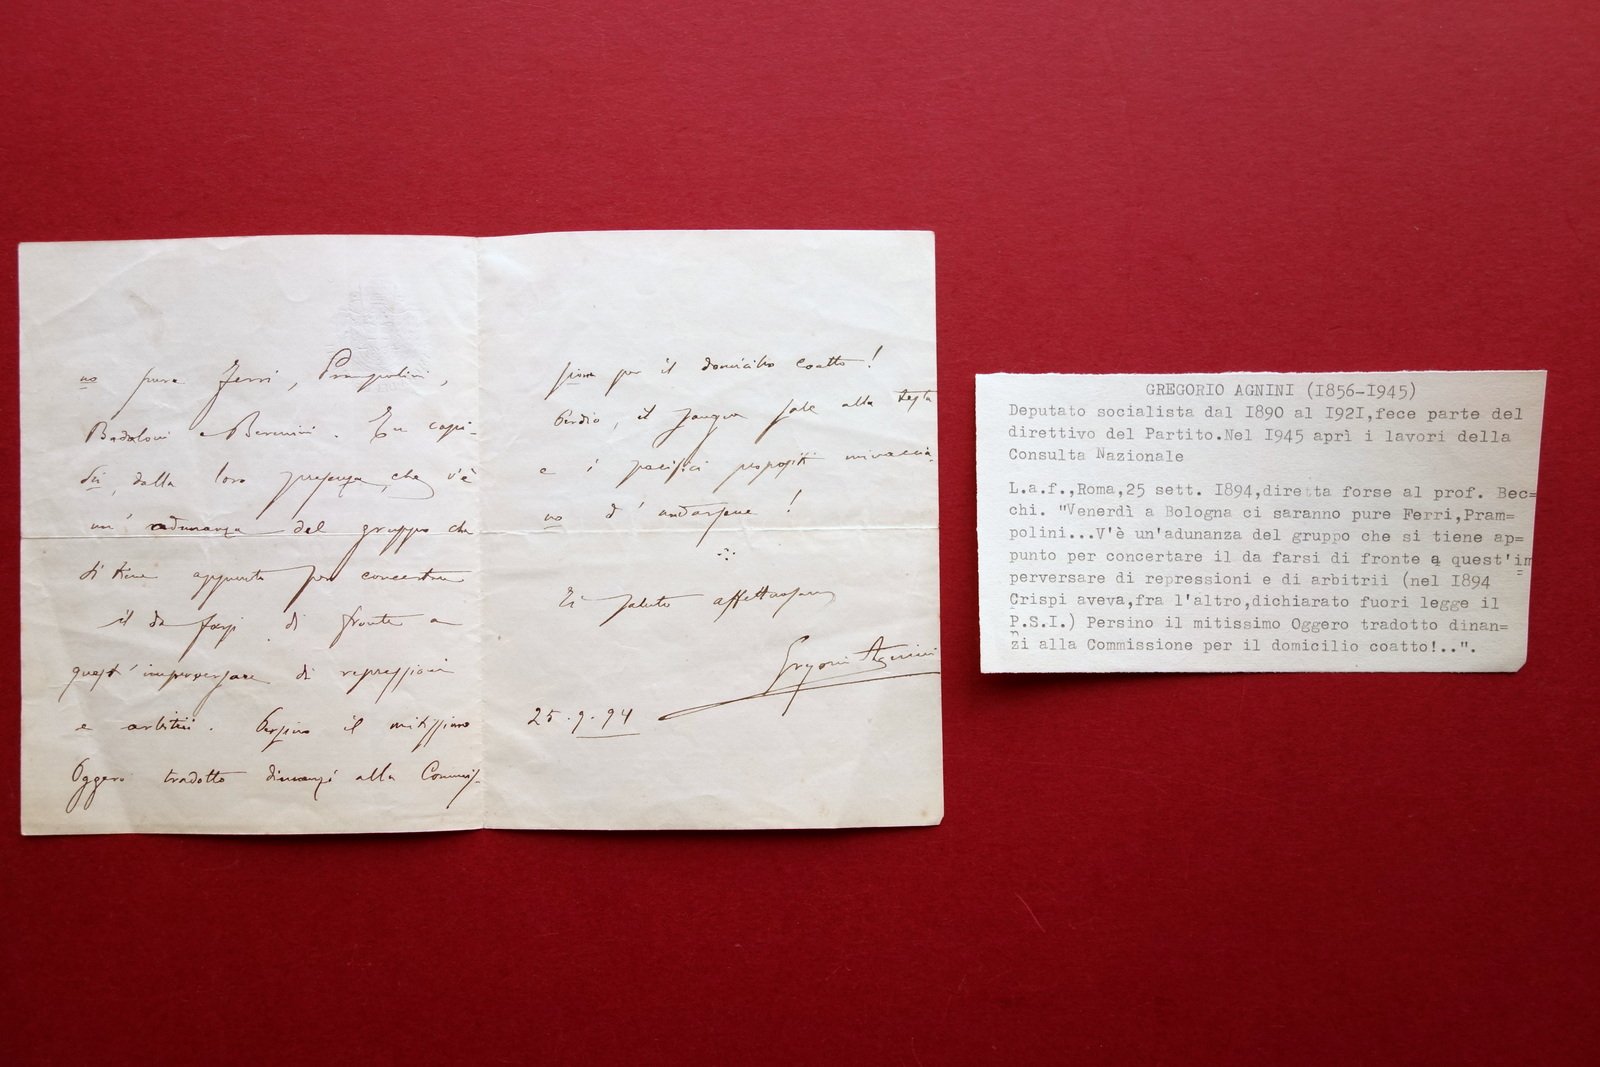 no pure Ferri, Prampolini,
Badaloni e Berenini. Tu capi-
sci, dalla loro presenza, che v'è
un'adunanza del gruppo che
si tiene appunto per concertare
il da farsi di fronte a
quest'imperversare di repressioni
e arbitrii. Persino il mitissimo
Oggero tradotto dinanzi alla Commis-
sione per il domicilio coatto!
Perdio, il sangue sale alla testa
e i pacifici propositi minaccia-
no d'andarsene!
Ti saluto affettuosam
Gregorio Agnini
25.9.94
GREGORIO AGNINI (I856-I945)
Deputato socialista dal I890 al I92I,fece parte del
direttivo del Partito.Nel I945 aprì i lavori della
Consulta Nazionale
L.a.f.,Roma,25 sett. I894,diretta forse al prof. Bec=
chi. "Venerdì a Bologna ci saranno pure Ferri,Pram=
polini...V'è un'adunanza del gruppo che si tiene ap=
punto per concertare il da farsi di fronte a quest'im
perversare di repressioni e di arbitrii (nel I894
Crispi aveva,fra l'altro,dichiarato fuori legge il
P.S.I.) Persino il mitissimo Oggero tradotto dinan=
zi alla Commissione per il domicilio coatto!..".